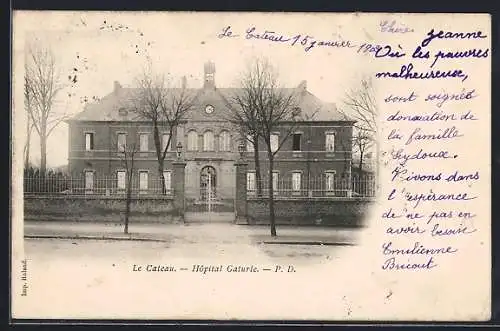 Le Cateau 15 janvier 190
Chère Jeanne
Où les pauvres
malheureuse,
sont soignée
donnation de
la famille
Seydoux.
Vivons dans
l'espérance
de ne pas en
avoir besoin
Emilienne
Bricout
Le Cateau. — Hôpital Gaturle. — P. D.
Imp. Roland.